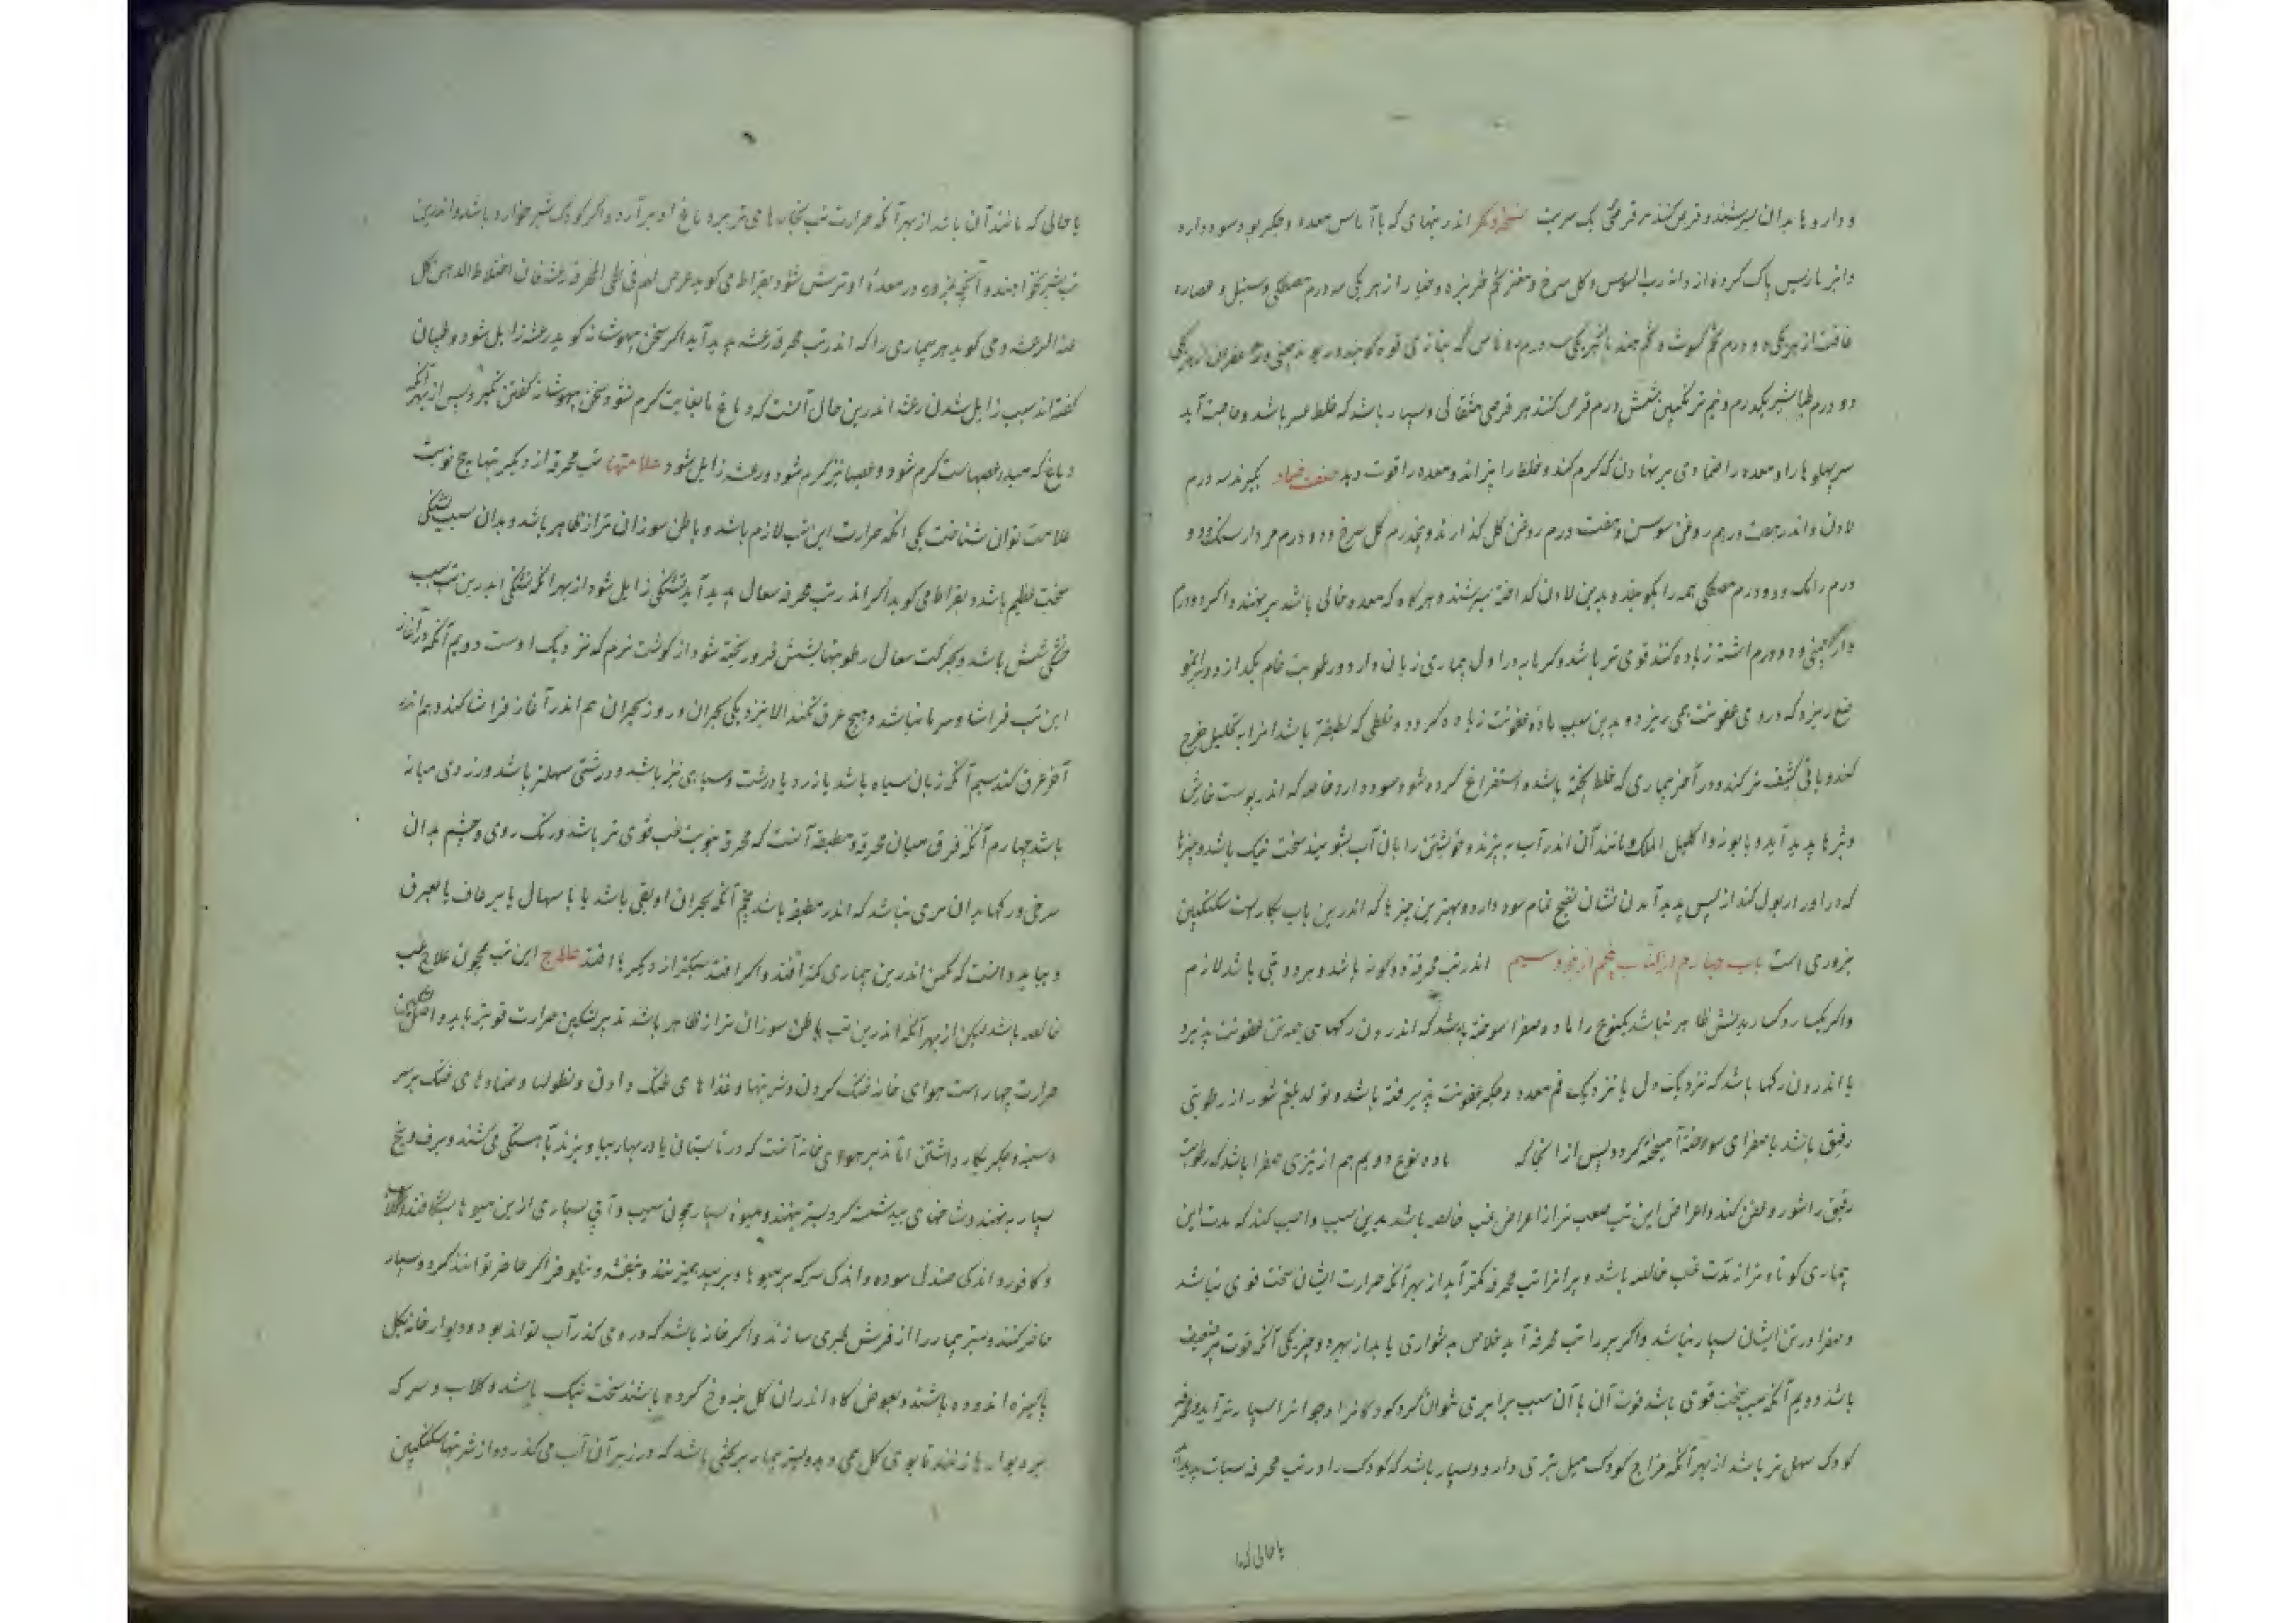 و دارو ها بدان بسرشند و قرص کنند هر قرصی یک شربت نسخه دیگر اندر تبهای که با آماس معده و جگر بود سود دارد
و انبرباریس پاک کرده از دانه رب السوس و گل سرخ و مغز تخم خربزه و خیار از هر یکی سه درم مصطکی و سنبل و عصاره
غافت از هر یکی دو درم تخم کشوث و تخم هندبا هر یکی سه درم روناس که بتازی فوه کویند ریوند چینی از هر یکی
دو درم طباشیر یکدرم و نیم ترنکبین شش درم قرص کنند هر قرصی مثقالی و بسیار باشد که خلط باشد و حاجت آید
سر پهلوها را و معده را ضمادی بر نهادن که کرم کند و خلط را بپزاند و معده را قوت دهد صفت ضماد بگیرند سه درم
لادن و اندر هفت درهم روغن سوسن و هفت درم روغن کل گذارند و پنجدرم کل سرخ و دو درم مردارسنگ و دو
درم رامک و دو درم مصطکی همه را بکوبند و بدین لادن گداخته بسرشند و هرگاه که معده خالی باشد بر نهند و اکر دو درم
دارچینی و دو درم اشنه زیاده کنند قوی تر باشد و کرمابه در اول بیماری زیان دارد و رطوبت خام بگدازد و
ریزد که در وی عفونت همی ریزد و بدین سبب ماده عفونت زیاده کردد و خلطی که لطیفتر باشد انرا به تحلیل خرج
کند و باقی کثیف تر کند و در آخر بیماری که خلط پخته باشد و استفراغ کرده شود سود دارد خاصه که اندر پوست خارش
و بثرها پدید آید و بابونه و اکلیل الملک و مانند آن اندر آب بپزند و خویشتن را بان آب بشویند سخت نیک باشد و چیزها
که ادرار بول کند از پس پدید آمدن نشان نضج تمام سود دارد و بهترین چیزها که اندرین باب بکارست سکنگبین
بزوری است باب چهارم از کتاب پنجم از جزو سیم اندر تب محرقه و دو کونه باشد و هر دو تبی باشد لازم
یا اندرون رکها باشد که نزدیک دل یا نزدیک فم معده و جگر عفونت پذیرفته باشد و تولد بلغم شور از رطوبتی
رقیق باشد با صفرای سوخته آمیخته کردد پس از انجا که ماده نوع دویم هم از تیزی صفرا باشد که رطوبت
رقیق را شور و عفن کند و اعراض این تب صعب تر از اعراض غب خالصه باشد بدین سبب واجب کند که مدت این
بیماری کوتاه تر از مدت غب خالصه باشد و پیرانرا تب محرقه کمتر آید از بهر آنکه حرارت ایشان سخت قوی نباشد
و صفرا در تن ایشان بسیار نباشد و اکر پیر را تب محرقه آید خلاص بدشواری یابد از بهر دو چیز یکی آنکه قوت پیر ضعیف
باشد دویم آنکه سبب سخت قوی باشد قوت آن با آن سبب برابری نتوان کرد کودکانرا و جوانانرا بسیار تر آید
کودک سهل تر باشد از بهر آنکه مزاج کودک میل بتری دارد و بسیار باشد که کودک را در تب محرقه سبات پدید آید
یا حالی که
یا حالی که مانند آن باشد از بهر آنکه حرارت تب بخارهای تر بر دماغ او بر آرد و اکر کودک شیرخواره باشد و اندرین
تب شیر نخواهند و آنچه بخورد در معده او ترش شود بقراط می کوید
هذا الرعشه و می کوید هر بیماری را که اندر تب محرقه رعشه پدید آید اکر سخن بیهوشانه کوید رعشه زایل شود و طبیبان
کفته اند سبب زایل شدن رعشه اندرین حال آنست که دماغ بغایت کرم شود و سخن بیهوشانه کفتن گیرد پس از بهر آنکه
دماغ که مبدء عصبهاست کرم شود و عصبها نیز کرم شود و رعشه زایل شود علامتها تب محرقه از دیگر تبها به پنج
علامت توان شناخت یکی انکه حرارت این تب لازم باشد و باطن سوزان تر از ظاهر باشد و بدان سبب تشنگی
سخت عظیم باشد و بقراط می کوید اکر اندر تب محرقه سعال پدید آید تشنگی زایل شود از بهر انکه تشنگی اندرین تب بسبب
خشکی شش باشد و بحرکت سعال رطوبتها بشش فرو ریخته شود از گوشت نرم که نزدیک اوست دویم آنکه در آغاز
این تب فراشا و سرما نباشد و هیچ عرق نکند الا نزدیکی بحران و روز بحران هم اندر آغاز فراشا کند و هم اندر
آخر عرق کند سیم آنکه زبان سیاه باشد یا زرد یا درشت و سیاهی نیز باشد و درشتی سهلتر باشد و زردی میانه
باشد چهارم آنکه فرق میان محرقه و مطبقه آنست که محرقه بنوبت غب قوی تر باشد و رنگ روی و چشم بدان
سرخی و رکها بدان پری نباشد که اندر مطبقه باشد پنجم آنکه بحران او بقی باشد یا با سهال یا برعاف یا بعرق
و بباید دانست که نکس اندرین بیماری کمتر افتد و اکر افتد سبکتر از دیگرها افتد علاج این تب همچون علاج غب
خالصه باشد لیکن از بهر آنکه اندرین تب باطن سوزان تر از ظاهر باشد تدبیر تسکین حرارت قویتر باید و اصل تسکین
حرارت چهار است هوای خانه خنک کردن و شربتها و غذا های خنک دادن و نطولها و ضمادهای خنک بر سر
و سینه و جگر بکار داشتن اما تدبیر هوای خانه آنست که در تابستان بادبزنها بیاویزند بآهستگی می کشند و برف و یخ
بسیار بنهند و شاخهای بید شسته کرد بستر بنهند و میوه بسیار چون سیب و آبی بسیاری ازین میوها بشکافند و گلاب
و کافور و اندکی صندل سوده و اندکی سرکه بر میوها و بر بید بریزند و بنفشه و نیلوفر اکر حاضر توانند کرد بسیار
حاضر کنند و بستر بیمار را از فرش طبری سازند و اکر خانه باشد که در وی کذر آب تواند بود و دیوار خانه بگل
پاکیزه اندوده باشند و بعوض کاه اندر ان کل کرده باشند سخت نیک باشد و کلاب و سرکه
بر دیوارها زنند تا بوی کل همی دهد و بستر بیمار بر تختی باشد که در زیر آن آب می کذرد و از شربتها سکنگبین